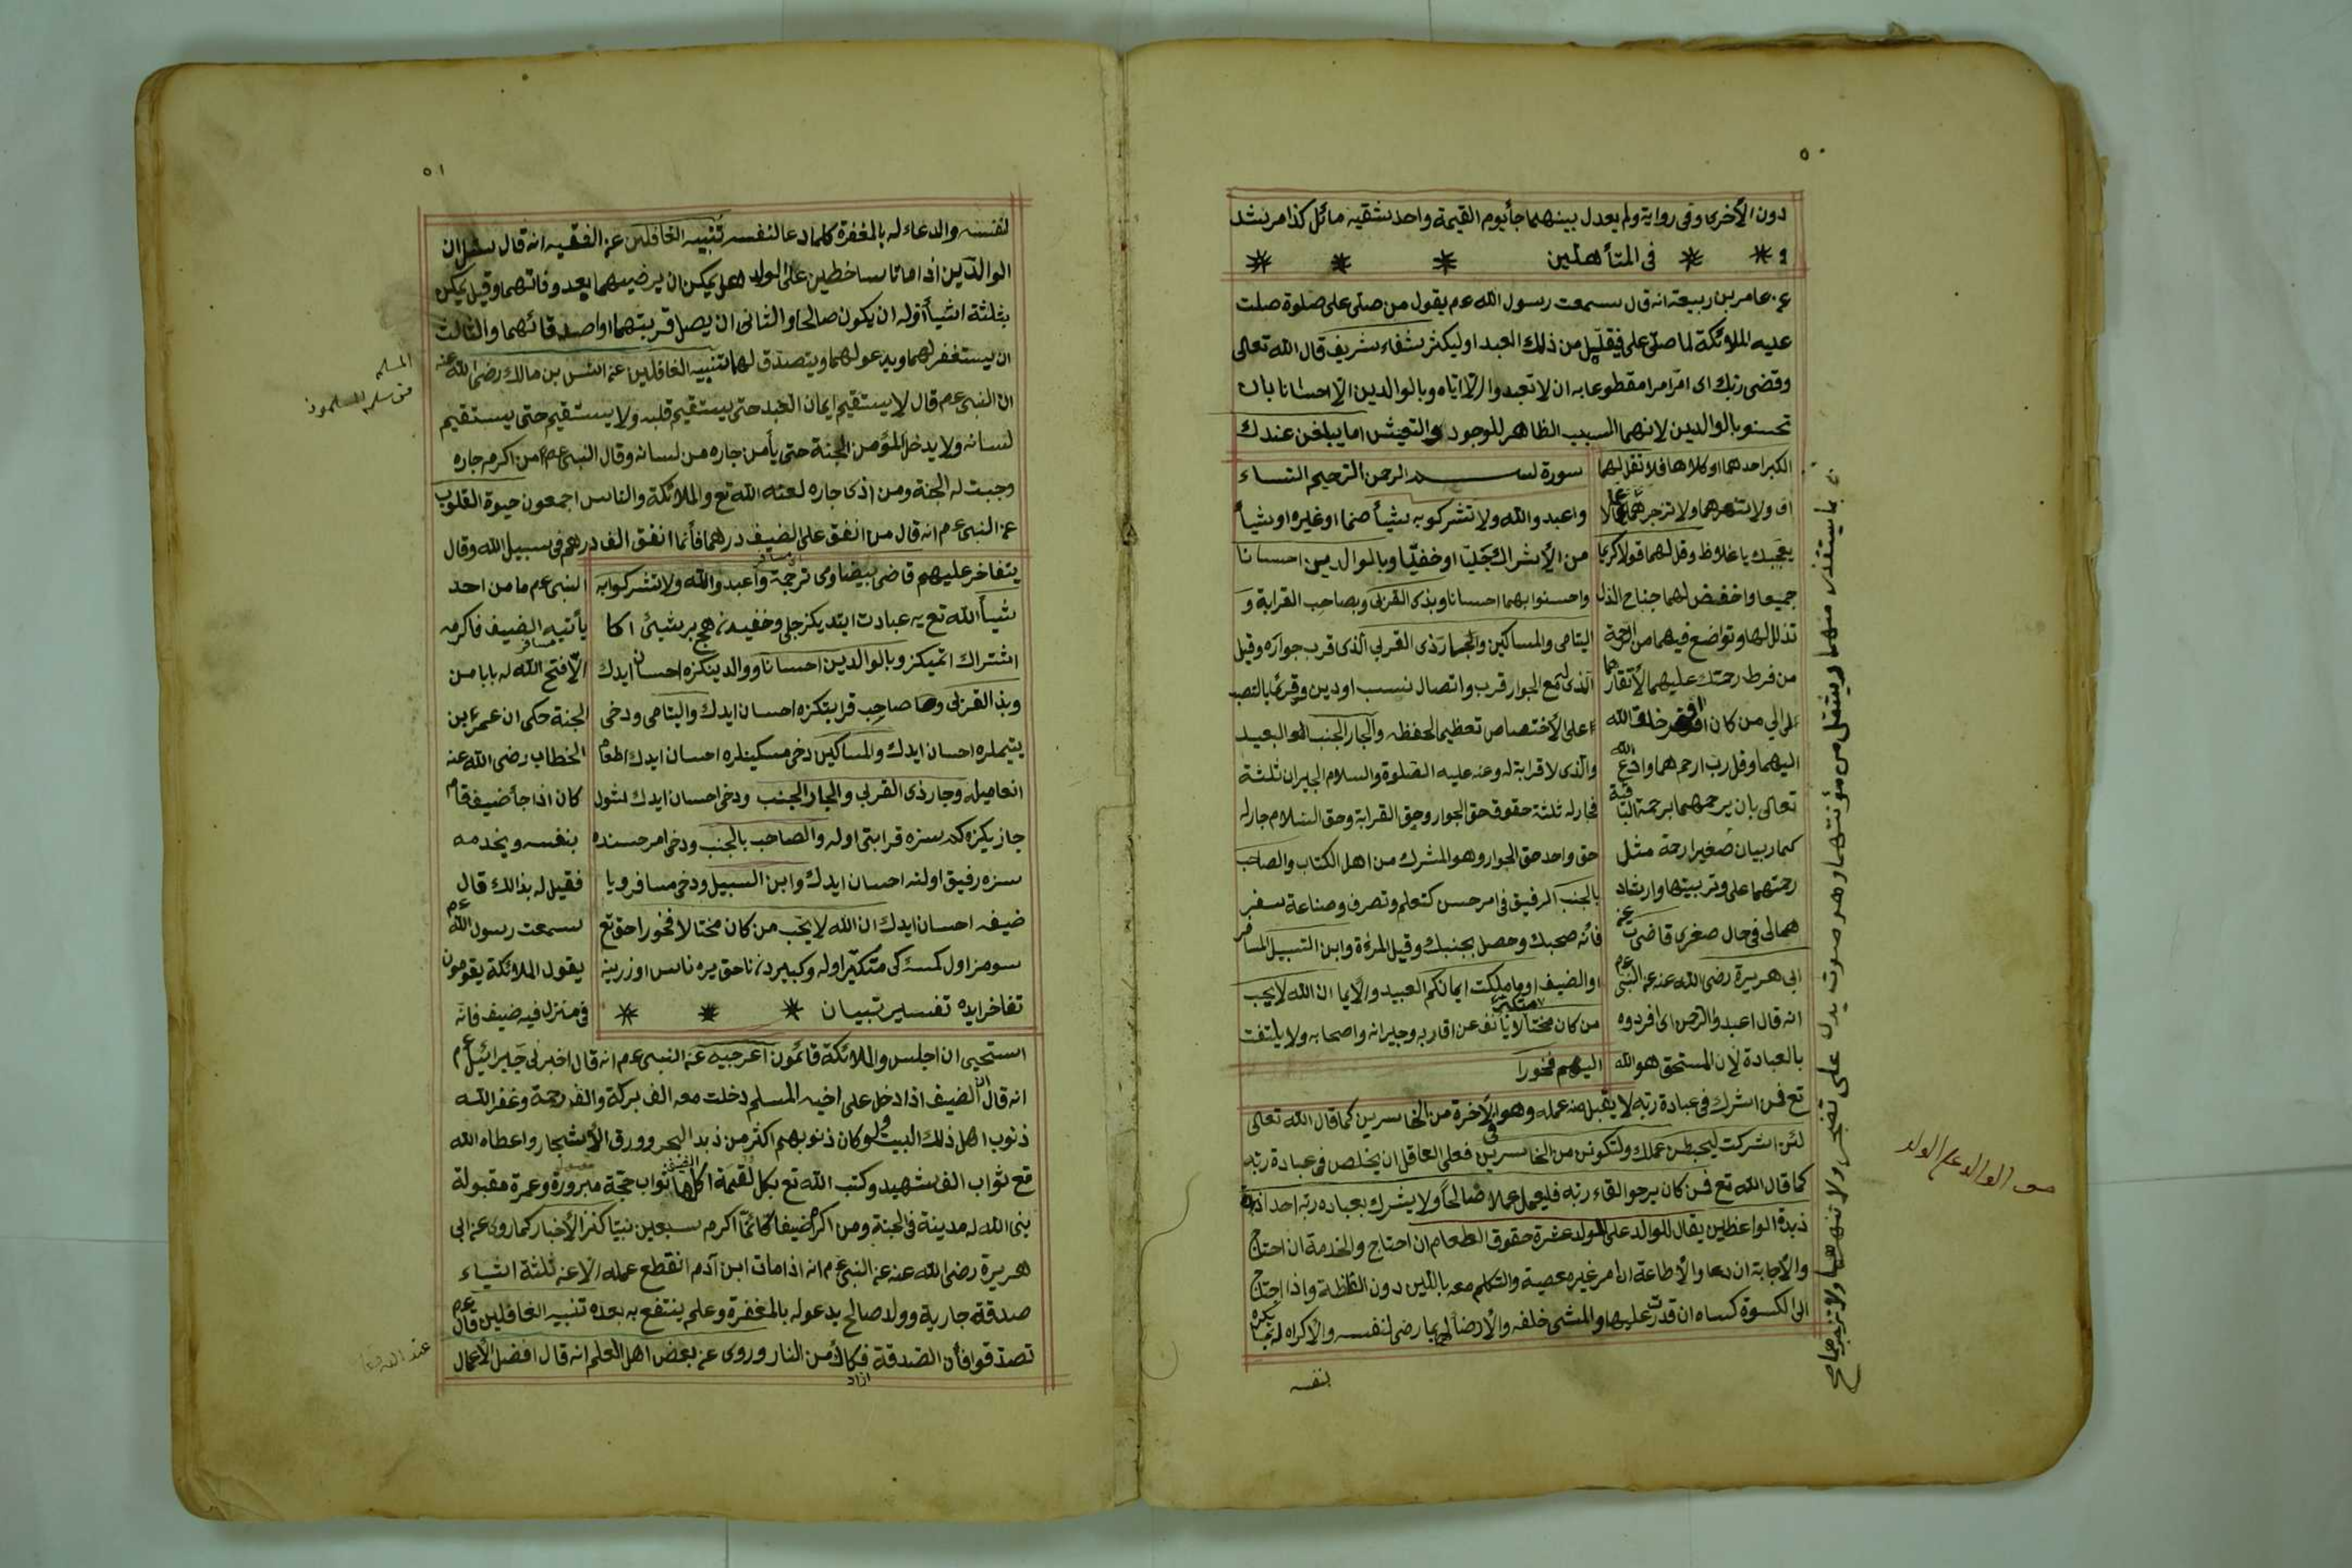 ٥٠
دون الأخرى وفى رواية ولم يعدل بينهما جأ يوم القيمة واحد شقيه مائل كذا مرشد
و * * فى المتأهلين * * *
عن عامر بن ربيعة انه قال سمعت رسول الله عم يقول من صلى على صلوة صلت
عليه الملائكة لما صلى على فيقلل من ذلك العبد او ليكثر شفاء شريف قال الله تعالى
وقضى ربك اى امر امرا مقطوعا به ان لا تعبدوا الا اياه وبالوالدين الا احسانا بان
تحسنو بالوالدين لانهما السبب الظاهر للوجود والتعيش اما يبلغن عندك
الكبر احدهما او كلاهما فلا تقل لهما
اف ولا تنهرهما ولا تزجرهما عما لا
يعجبك باغلاظ وقل لهما قولا كريما
جميعا واخفض لهما جناح الذل
تذلل لهما وتواضع فيهما من الرحمة
من فرط رحمتك عليهما لأفتقارهما
الى من كان افقر خلق الله
اليهما وقل رب ارحمهما وادع الله
تعالى بان يرحمهما برحمة الباقية
كما ربيان صغيرا رحمة مثل
رحمتهما على وتربيتهما وارشاد
هما لى فى حال صغرى قاضى عن
ابى هريرة رضى الله عنه عن النبى عم
انه قال اعبدوا الرحمن اى افردوه
بالعبادة لأن المستحق هو الله
سورة بسم الرحمن الرحيم النساء
واعبدوا الله ولا تشركو به شيأ صنما او غيره او شيأ
من الأشراك جليا او خفيا وبالوالدين احسانا
واحسنوا بهما احسانا وبذى القربى وبصاحب القرابة و
اليتامى والمساكين والجار ذى القربى الذى قرب جواره وقيل
الذى له مع الجوار قرب واتصال بنسب او دين وقرئ بالنصب
على الأختصاص تعظيما لحقه والجار الجنب البعيد
والذى لا قرابة له وعنه عليه الصلوة والسلام الجيران ثلثة
فجار له ثلثة حقوق حق الجوار وحق القرابة وحق السلام جار له
حق واحد حق الجوار وهو المشرك من اهل الكتاب والصاحب
بالجنب الرفيق فى امر حسن كتعلم وتصرف وصناعة سفر
فانه صحبك وحصل بجنبك وقيل المرءة وابن السبيل المسافر
او الضيف او ما ملكت ايمانكم العبيد والأيما ان الله لا يحب
من كان مختالا متكبر يأنف عن اقاربه وجيرانه واصحابه ولا يلتفت
اليهم فخورا
تع فمن اشرك فى عبادة ربه لا يقبل منه عمله وهو فى الأخرة من الخاسرين كما قال الله تعالى
لئن اشركت ليحبطن عملك ولتكونن من الخاسرين فعلى العاقل ان يخلص فى عبادة ربه
كما قال الله تع فمن كان يرجوا لقاء ربه فليعمل عملا صالحا ولا يشرك بعباده ربه احدا
زبدة الواعظين يقال للوالد على الولد عشرة حقوق الطعام ان احتاج والخدمة ان احتاج
والأجابة ان دعا والأطاعة ان امر غير معصية والتكلم معه باللين دون الغلظة واذا احتاج
الى الكسوة كساه ان قدرت عليها والمشى خلفه والأرضأ له بما رضى لنفسه والأكراه له بما يكره
بنفسه
على تضجر ولا تنهرهما ولا تزجرهما
٥١
لنفسه والدعاء له بالمغفرة كلما دعا لنفسه تنبيه الغافلين عن الفقيه انه قال سئل ان
الوالدين اذا ماتا ساخطين على الولد هل يمكن ان يرضيهما بعد وفاتهما وقيل يمكن
بثلثة اشيأ اوله ان يكون صالحا والثانى ان يصل قربتهما واصدقائهما والثالث
ان يستغفر لهما ويدعو لهما ويتصدق لهما تنبيه الغافلين عن انس بن مالك رضى الله عنه
ان النبى عم قال لا يستقيم ايمان العبد حتى يستقيم قلبه ولا يستقيم حتى يستقيم
لسانه ولا يدخل المؤمن الجنة حتى يأمن جاره من لسانه وقال النبى عم من اكرم جاره
وجبت له الجنة ومن اذى جاره لعنه الله تع والملائكة والناس اجمعون حيوة القلوب
عن النبى عم انه قال من انفق على الضيف درهما فأنما انفق الف درهم فى سبيل الله وقال
يتفاخر عليهم قاضى بيضاوى ترجمة واعبدوا الله ولا تشركوا به
شيأ الله تع يه عبادت ايتديكز جلى وخفيدن هيچ بر شيئ اكا
اشتراك اتميكز وبالوالدين احسانا ووالدينكزه احسان ايدك
وبذا القربى وهما صاحب قرابتكزه احسان ايدك واليتامى ودخى
يتيملره احسان ايدك والمساكين دخى مسكينلره احسان ايدك اطعام
انعاميله وجار ذى القربى والجار الجنب ودخى احسان ايدك شول
جاريكزه كه سزه قرابتى اوله والصاحب بالجنب ودخى امر حسنده
سزه رفيق اولنه احسان ايدك وابن السبيل ودخى مسافر ويا
ضيفه احسان ايدك ان الله لا يحب من كان مختالا فخورا حق تع
سومز اول كمسه كى متكبر اوله وكبيردن ناحق يره ناس اوزرينه
تفاخر ايده تفسير تبيان * * *
النبى عم ما من احد
يأتيه الضيف فاكرمه
الا فتح الله له بابا من
الجنة حكى ان عمر بن
الخطاب رضى الله عنه
كان اذا جأ ضيف قام
بنفسه ويخدمه
فقيل له بذالك قال
سمعت رسول الله عم
يقول الملائكة يقومون
فى منزل فيه ضيف فانه
استحيى ان اجلس والملائكة قائمون اعرجيه عن النبى عم انه قال اخبرنى جبرائيل عم
انه قال ان الضيف اذا دخل على اخيه المسلم دخلت معه الف بركة والف رحمة وغفر الله
ذنوب اهل ذلك البيت ولو كان ذنوبهم اكثر من زبد البحر وورق الأشجار واعطاه الله
تع ثواب الف شهيد وكتب الله تع بكل لقمة اكلها الضيف ثواب حجة مبرورة وعمرة مقبولة
بنى الله له مدينة فى الجنة ومن اكرم ضيفا كأنما اكرم سبعين نبيا كنز الأخبار كما روى عن ابى
هريرة رضى الله عنه عن النبى عم انه اذا مات ابن آدم انقطع عمله الا عن ثلثة اشياء
صدقة جارية وولد صالح يدعو له بالمغفرة وعلم ينتفع به بعده تنبيه الغافلين قال عم
تصدقوا فأن الصدقة فكاك من النار وروى عن بعض اهل العلم انه قال افضل الأعمال
ازاد
المسلم
من سلم المسلمون